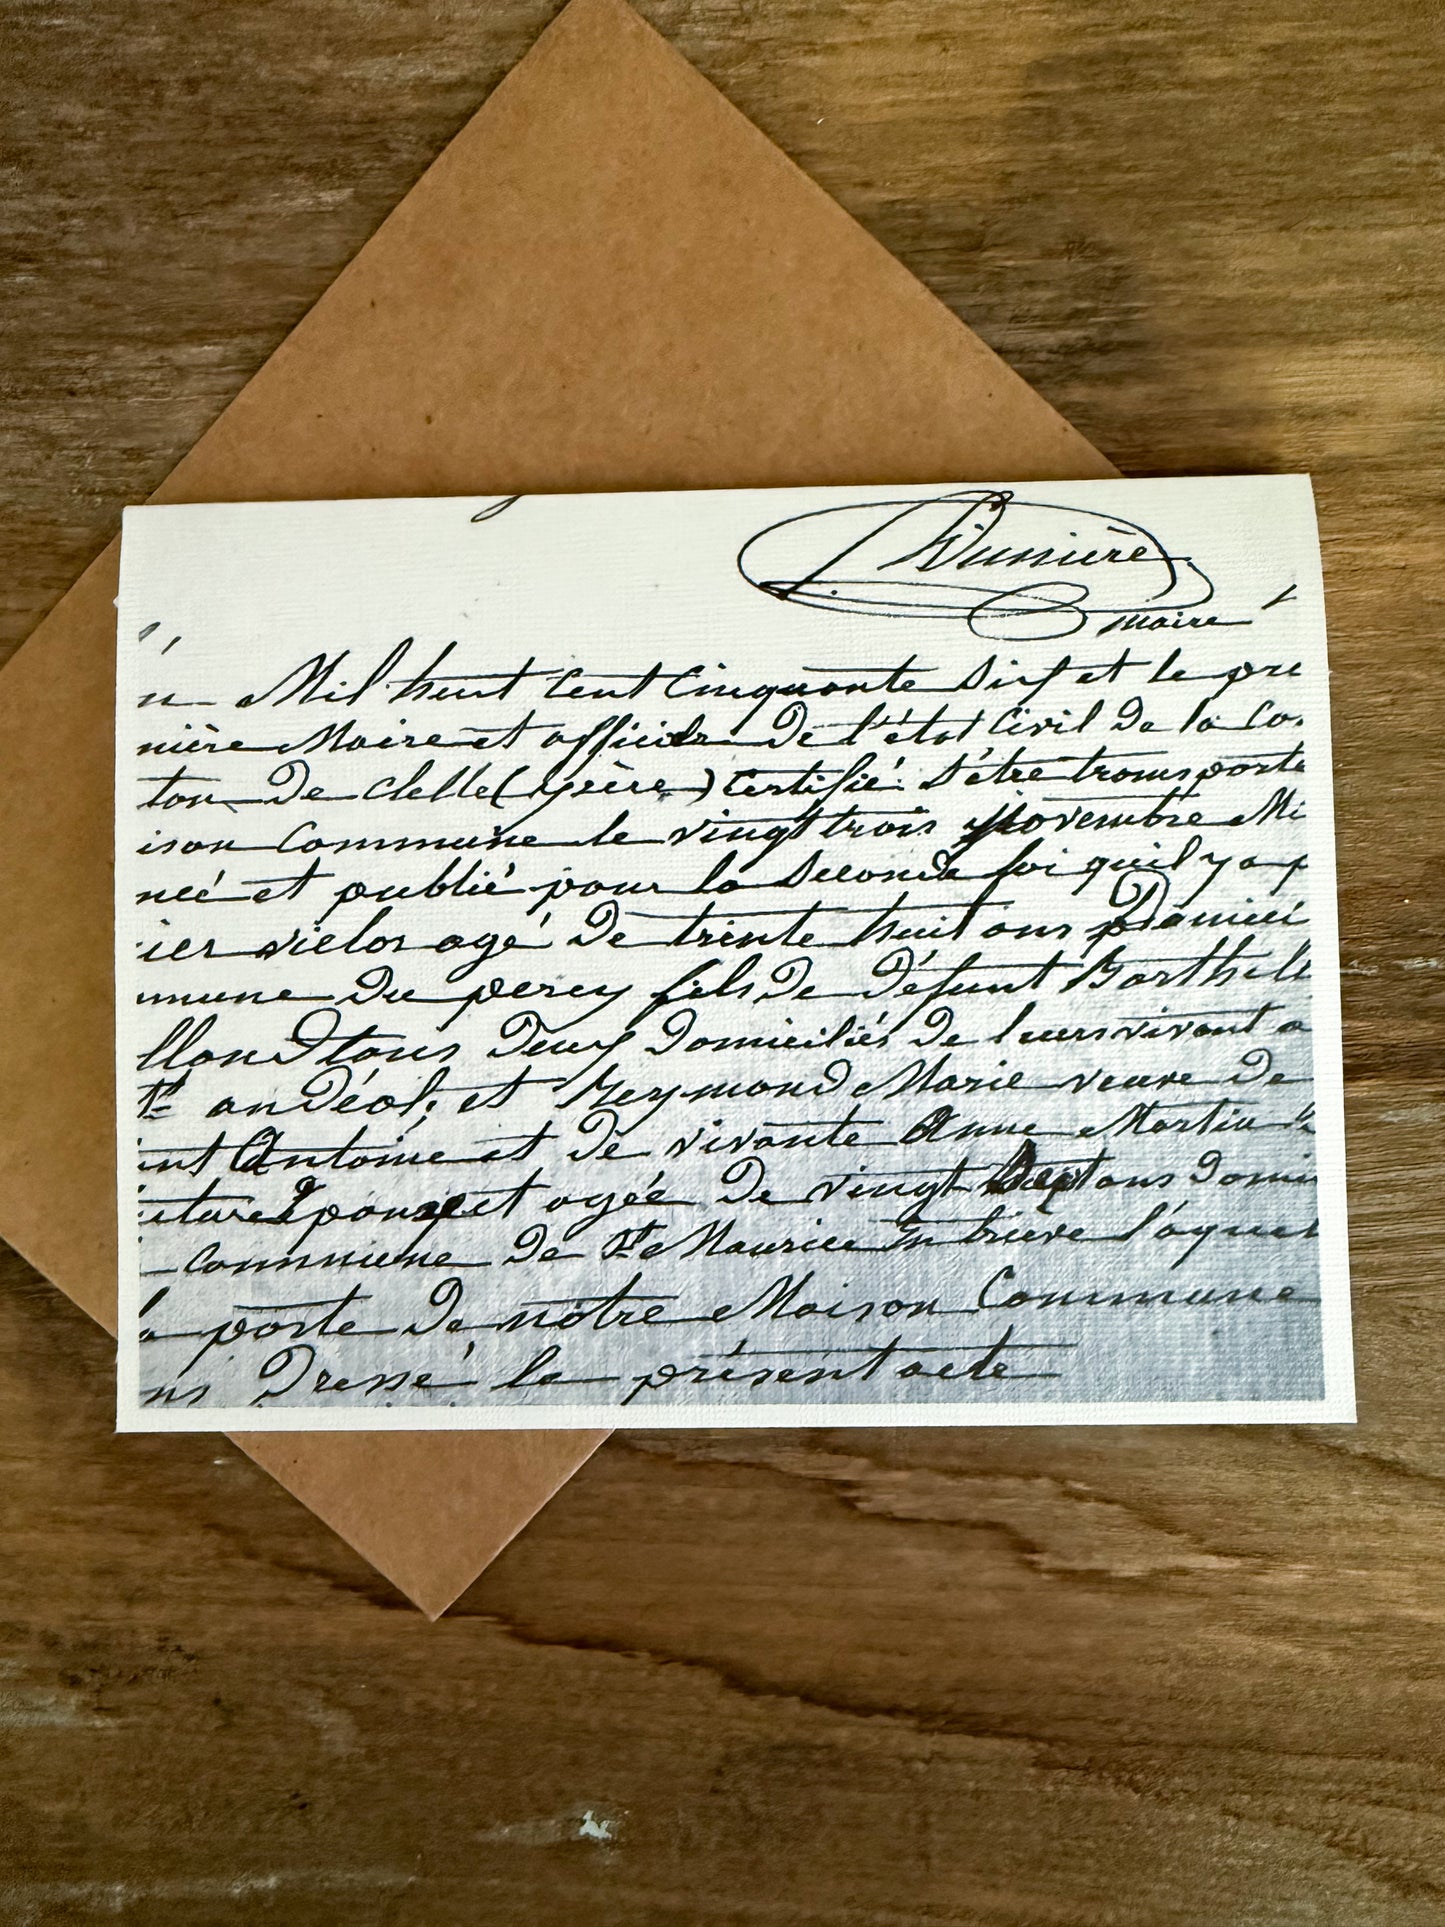 maire
Mil huit cent cinquante six et le pre
nière Maire et officier De l'état Civil De la Co
ton De Clelle (Isère) Certifié s'être transporté
ison Commune le vingt trois Novembre Mi
ncé et publié pour la seconde foi quil y a p
ier viclos agé De trente huit ans Domicii
mmune Du percy fils De Défunt Barthele
lland tous Deux Domiciliés De leurs vivant a
St andéol; et Reymond Marie veuve De
int Antoine et De vivante Anne Martin
Epouse et agée De vingt sept ans Domici
Commune De St Maurice En trieve l'aquel
a porte De notre Maison Commune
ns Dressé le présent acte